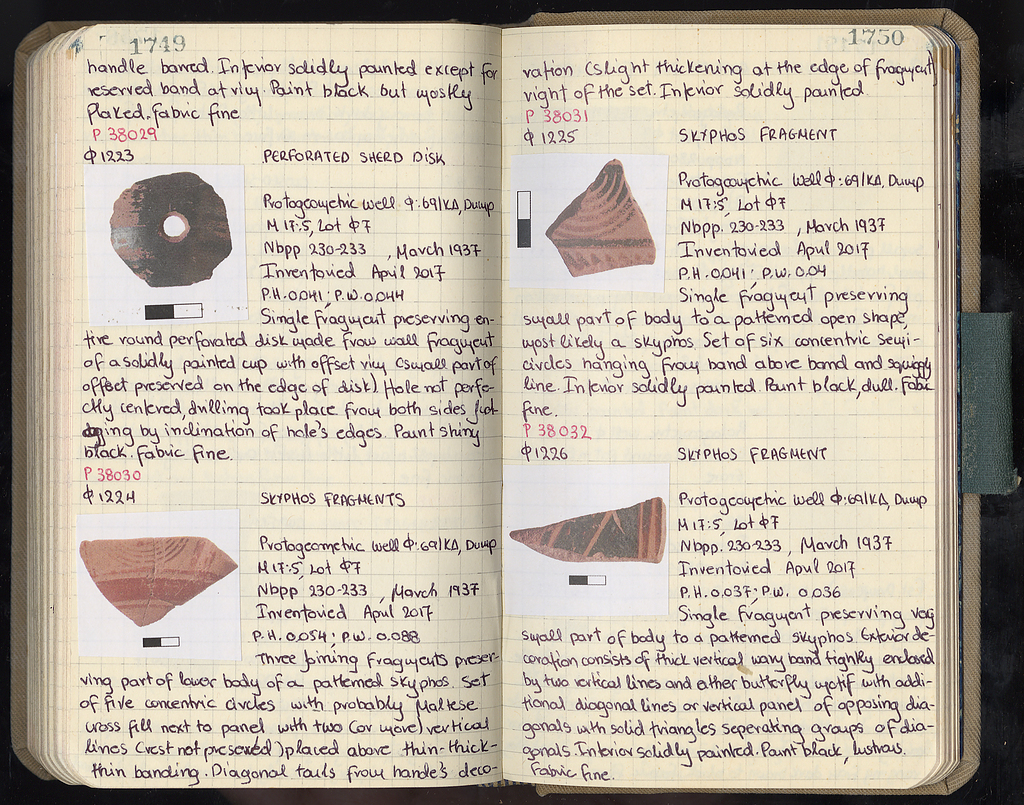 1749
handle barred. Interior solidly painted except for
reserved band at rim. Paint black but mostly
flaked. Fabric fine
P 38029
Φ1223 PERFORATED SHERD DISK
Protogeometric well Φ:69/ΚΔ, Dump
M 17:5, Lot Φ7
Nbpp 230-233 , March 1937
Inventoried April 2017
P.H. 0.041; P.W. 0.044
Single fragment preserving en-
tire round perforated disk made from wall fragment
of a solidly painted cup with offset rim (small part of
offset preserved on the edge of disk) Hole not perfe-
ctly centered, drilling took place from both sides jud-
ging by inclination of hole's edges. Paint shiny
black. Fabric fine.
P 38030
Φ1224 SKYPHOS FRAGMENTS
Protogeometric well Φ:69/ΚΔ, Dump
M 17:5, Lot Φ7
Nbpp 230-233 , March 1937
Inventoried April 2017
P.H. 0.054; P.W. 0.088
Three joining fragments preser-
ving part of lower body of a patterned skyphos. Set
of five concentric circles with probably Maltese
cross fill next to panel with two (or more) vertical
lines (rest not preserved) placed above thin-thick-
thin banding. Diagonal tails from handle's deco-
1750
ration (slight thickening at the edge of fragment
right of the set. Interior solidly painted
P 38031
Φ1225 SKYPHOS FRAGMENT
Protogeometric well Φ:69/ΚΔ, Dump
M 17:5, Lot Φ7
Nbpp. 230-233 , March 1937
Inventoried April 2017
P.H. 0.041; P.W. 0.04
Single fragment preserving
small part of body to a patterned open shape,
most likely a skyphos. Set of six concentric semi-
circles hanging from band above band and squiggly
line. Interior solidly painted. Paint black, dull. Fabric
fine.
P 38032
Φ1226 SKYPHOS FRAGMENT
Protogeometric well Φ:69/ΚΔ, Dump
M 17:5, Lot Φ7
Nbpp. 230-233 , March 1937
Inventoried April 2017
P.H. 0.037; P.W. 0.036
Single fragment preserving very
small part of body to a patterned skyphos. Exterior de-
coration consists of thick vertical wavy band tightly enclosed
by two vertical lines and either butterfly motif with addi-
tional diagonal lines or vertical panel of opposing dia-
gonals with solid triangles seperating groups of dia-
gonals. Interior solidly painted. Paint black, lustrous.
Fabric fine.